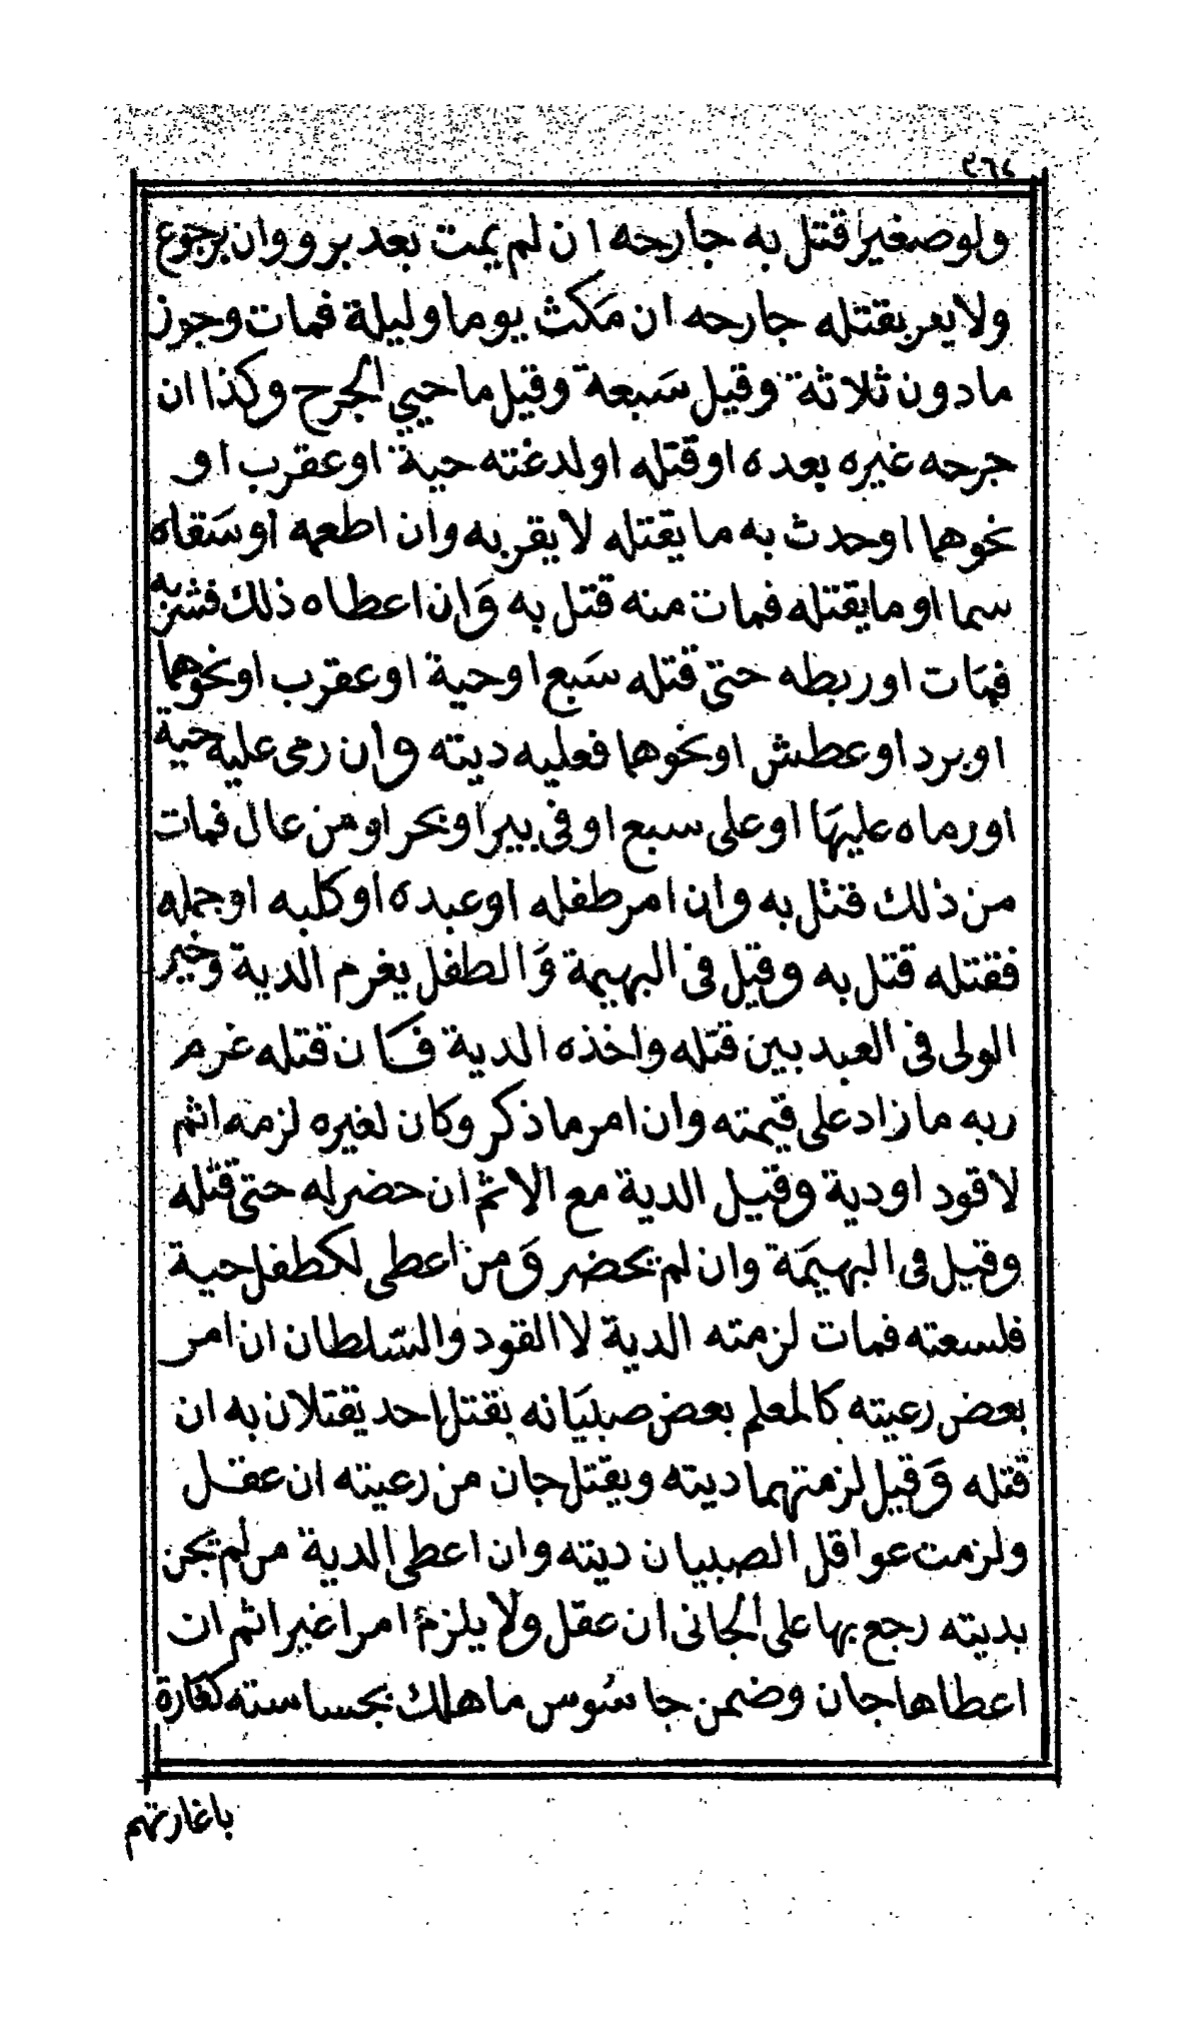 ٢٦٤
ولو صغيرا قتل به جارحه ان لم يمت بعد برو وان برجوع
ولا يعر بقتله جارحه ان مكث يوما وليلة فمات وجوز
ما دون ثلاثة وقيل سبعة وقيل ما حيي الجرح وكذا ان
جرحه غيره بعده او قتله او لدغته حية او عقرب او
نحوهما او حدث به ما يقتله لا يقربه وان اطعمه او سقاه
سما او ما يقتله فمات منه قتل به وان اعطاه ذلك فشربه
فمات او ربطه حتى قتله سبع او حية او عقرب او نحوهما
او برد او عطش او نحوهما فعليه ديته وان رمى عليه حية
او رماه عليها او على سبع او في بير او بحر او من عال فمات
من ذلك قتل به وان امر طفله او عبده او كلبه او جمله
فقتله قتل به وقيل في البهيمة والطفل يغرم الدية وخير
الولى في العبد بين قتله واخذه الدية فان قتله غرم
ربه ما زاد على قيمته وان امر ما ذكر وكان لغيره لزمه اثم
لا قود او دية وقيل الدية مع الاثم ان حضر له حتى قتله
وقيل في البهيمة وان لم يحضر ومن اعطى لكطفل حية
فلسعته فمات لزمته الدية لا القود والسلطان ان امر
بعض رعيته كالمعلم بعض صبيانه بقتل احد يقتلان به ان
قتله وقيل لزمتهما ديته ويقتل جان من رعيته ان عقل
ولزمت عواقل الصبيان ديته وان اعطى الدية من لم يجن
بديته رجع بها على الجانى ان عقل ولا يلزم امرا غير اثم ان
اعطاها جان وضمن جاسوس ما هلك بجساسته كغارة
باغارتهم